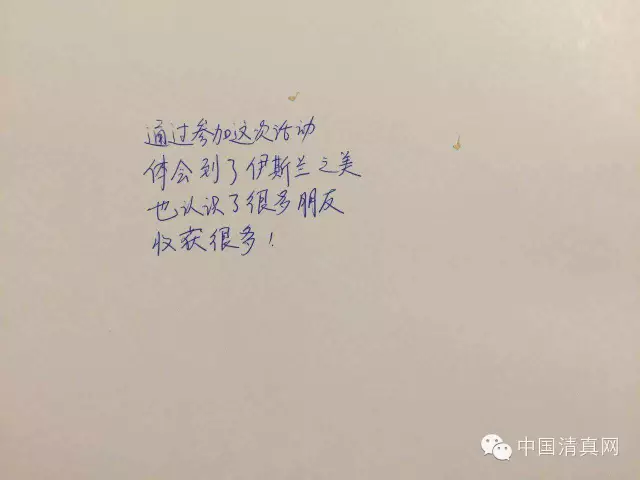 通过参加这次活动
体会到了伊斯兰之美
也认识了很多朋友
收获很多！
中国清真网